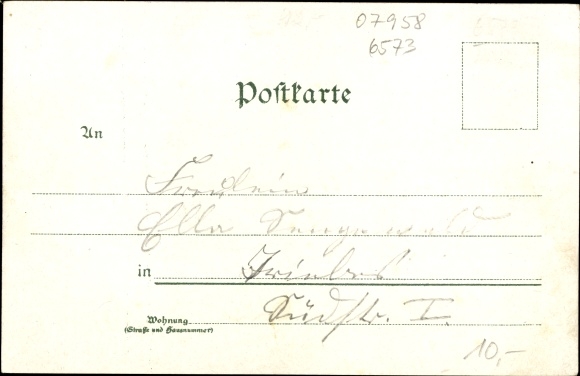 07958
6573
Postkarte
An
Fräulein
Ella
in Triebes
Südstr. I.
Wohnung
(Straße und Hausnummer)
10,-